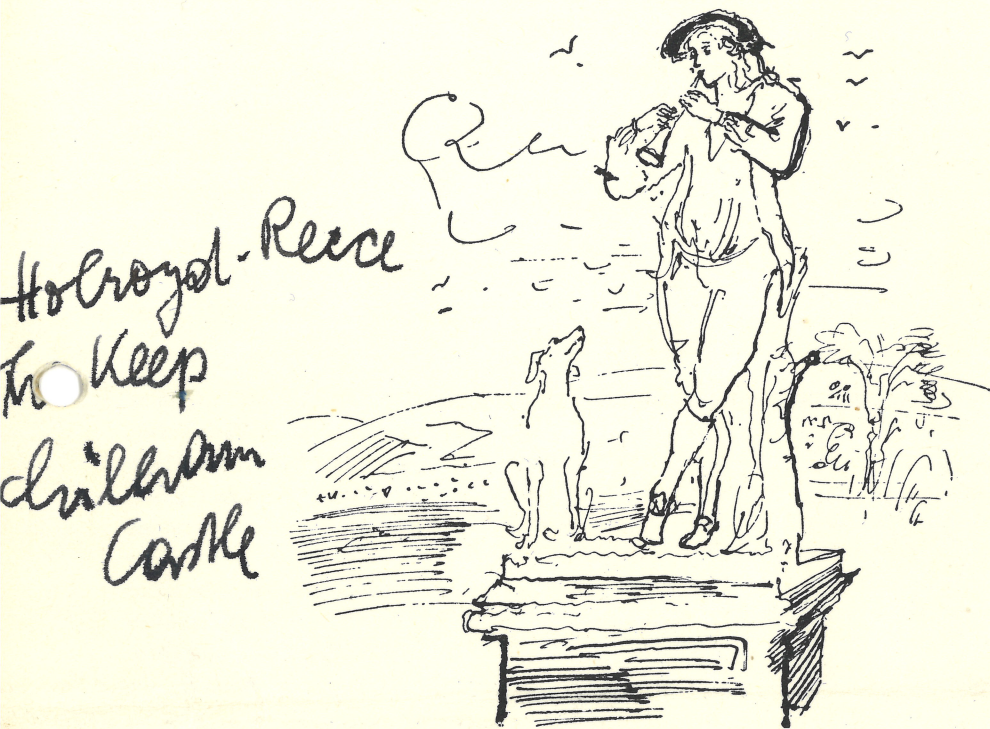 Holroyd-Reece
The Keep
Chilham
Castle